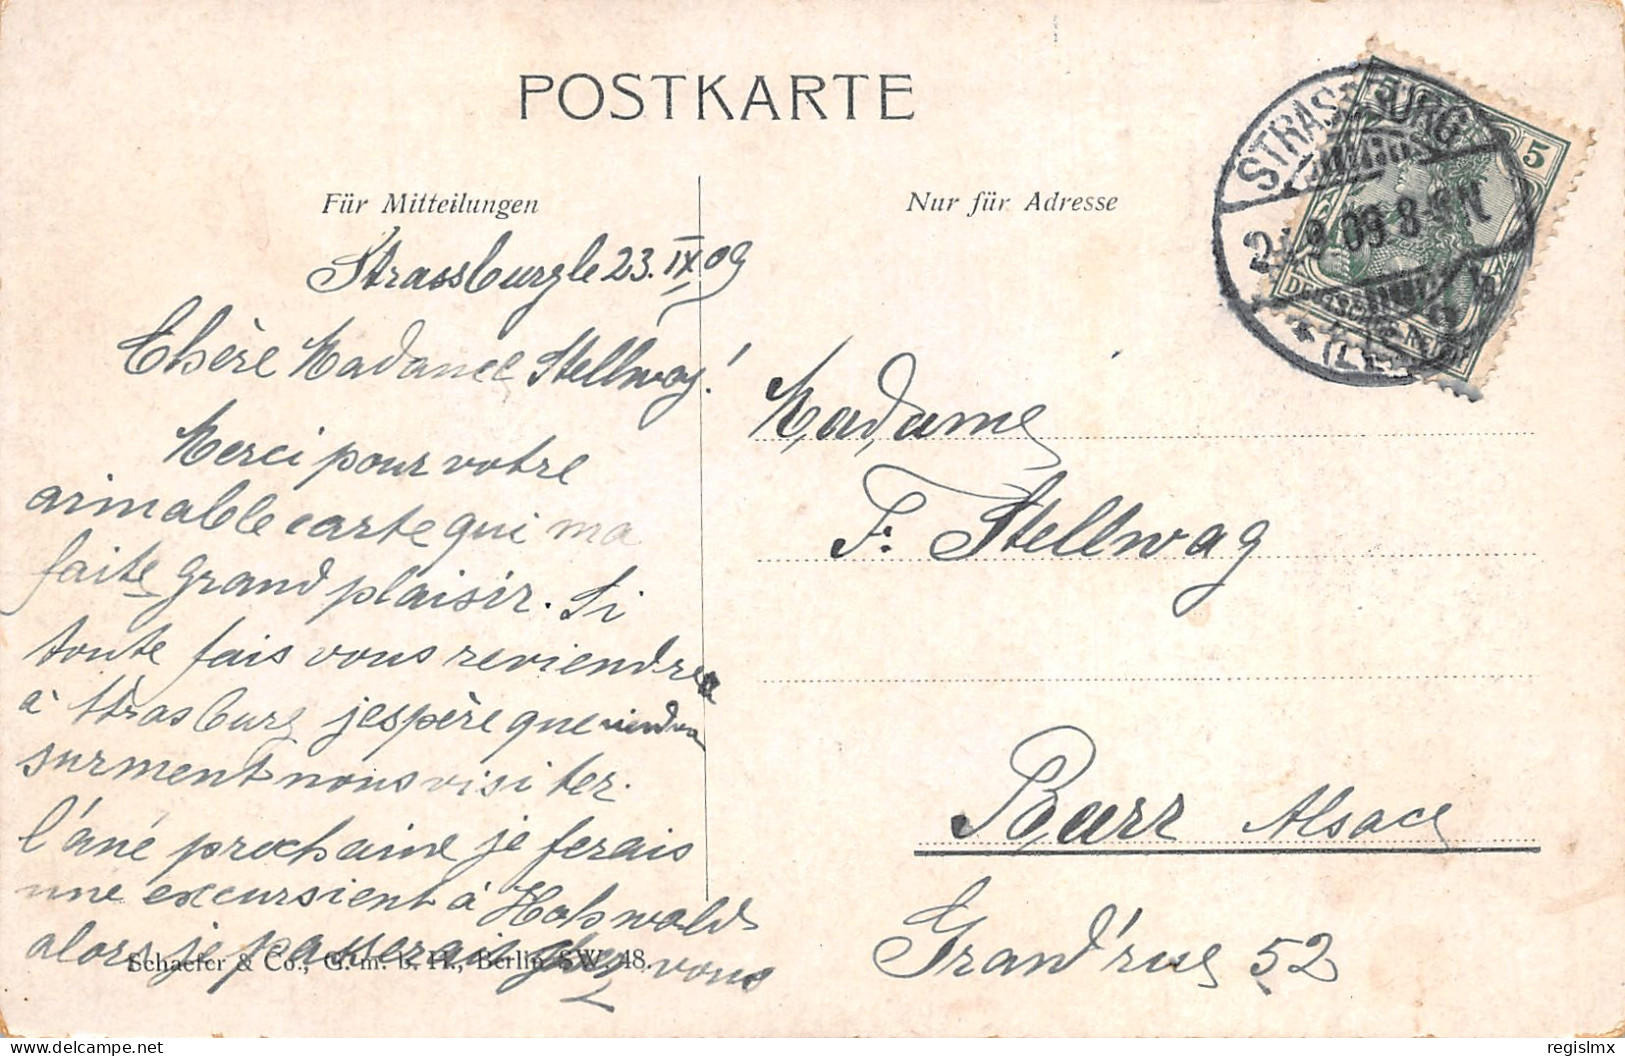 POSTKARTE
Für Mitteilungen
Nur für Adresse
STRASSBURG
09.8-9 N
5
DEUTSCHES REICH
Strassburg le 23. IX 09
Chère Madame Stellwag!
Merci pour votre
aimable carte qui ma
faite grand plaisir. Si
toute fais vous reviendre
à Strasburg jespère que viendra
surment nous visiter.
l'ané prochaine je ferais
une excursient à Hohwald
alors je passerais chez vous
Schaefer & Co., G. m. b. H., Berlin SW. 48.
Madame
F. Stellwag
Barr Alsace
Grand'rue 52
delcampe.net
regislmx